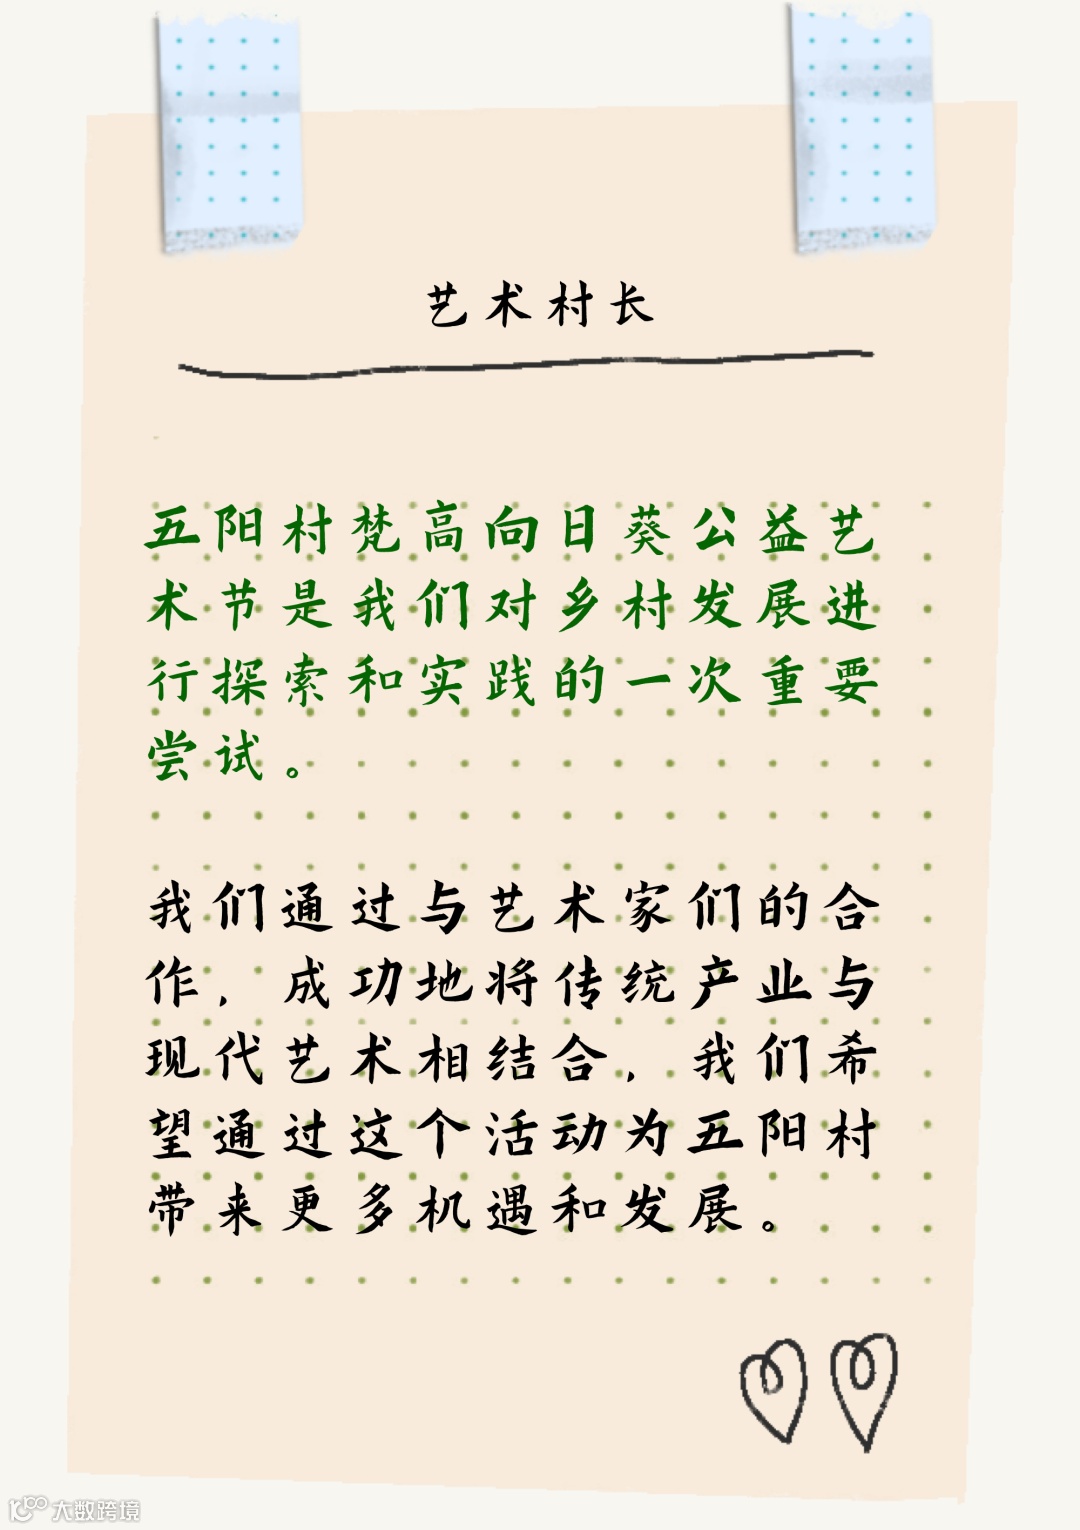 艺术村长
五阳村梵高向日葵公益艺
术节是我们对乡村发展进
行探索和实践的一次重要
尝试。
我们通过与艺术家们的合
作，成功地将传统产业与
现代艺术相结合，我们希
望通过这个活动为五阳村
带来更多机遇和发展。
大数跨境